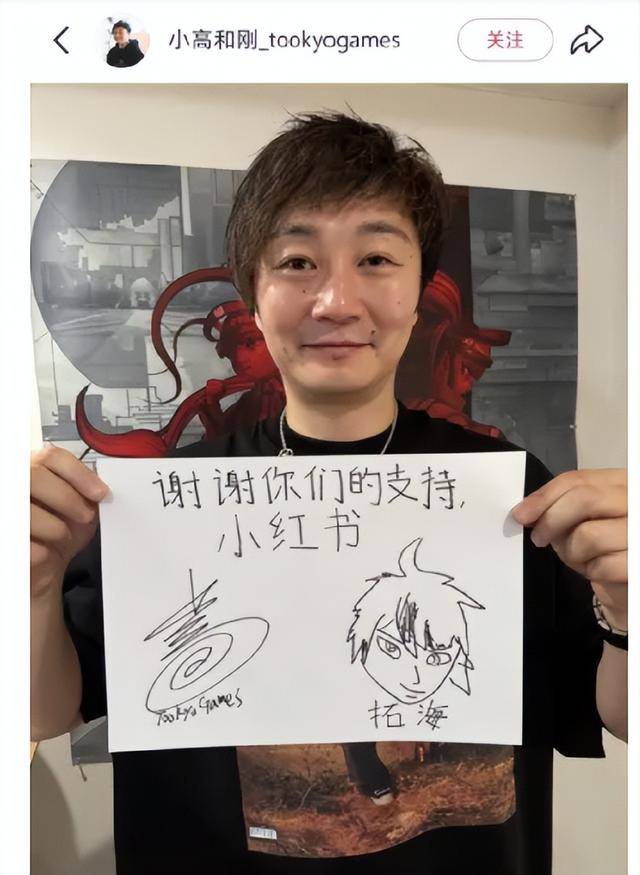 小高和刚_tookyogames
关注
谢谢你们的支持,
小红书
TooKyoGames
拓海